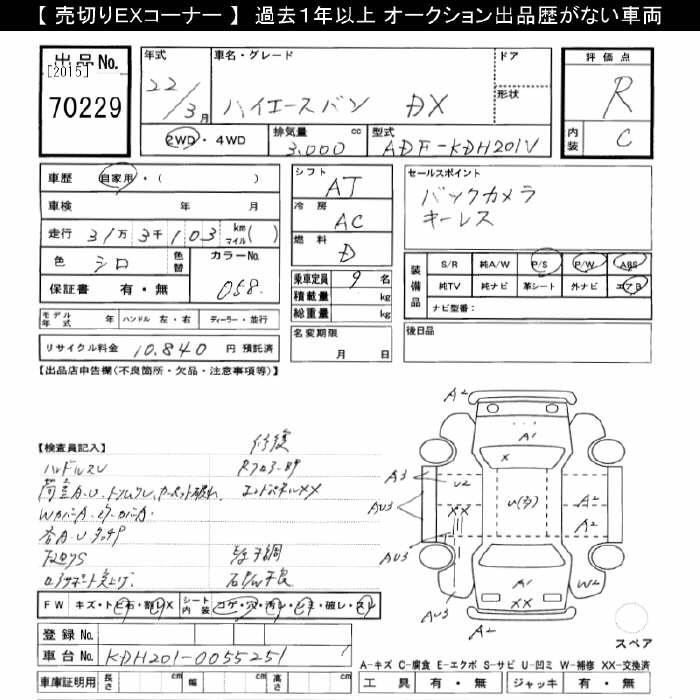 【 売切りEXコーナー 】 過去1年以上 オークション出品歴がない車両
出品No.
[2015]
70229
年式
22/3月
車名・グレード
ハイエースバン DX
ドア
形状
評価点
R
内装
C
2WD・4WD
排気量 cc
3.000
型式
ADF-KDH201V
車歴 自家用・( )
車検 年 月
走行 31万3千103 km マイル( )
色 シロ 色替
カラーNo. 058
保証書 有・無
シフト
AT
冷房
AC
燃料
D
乗車定員 9 名
積載量 kg
総重量 kg
セールスポイント
バックカメラ
キーレス
装備品
S/R 純A/W P/S P/W ABS
純TV 純ナビ 革シート 外ナビ エアB
ナビ型番:
モデル年式 年 ハンドル 左・右 ディーラー・並行
リサイクル料金 10.840 円 預託済
名変期限
月 日
後日品
【出品店申告欄(不良箇所・欠品・注意事項等)】
【検査員記入】
修復
ハンドルスレ
エンドパネルXX
WカバーA
各A・U タッチP
下回りS
FW キズ・トビ石・割レX
シート内装 コゲ・穴・汚レ・シミ・破レ・スレ
登録No.
車台No. KDH201-0055251
車庫証明用 長さ cm 幅 cm 高さ cm
A2
A1
X
A3
U2
AU3
XX
A2
A2
AU3
AU3
A1
XX
W2
A2
スペア
A-キズ C-腐食 E-エクボ S-サビ U-凹ミ W-補修 XX-交換済
工具 有・無 ジャッキ 有・無